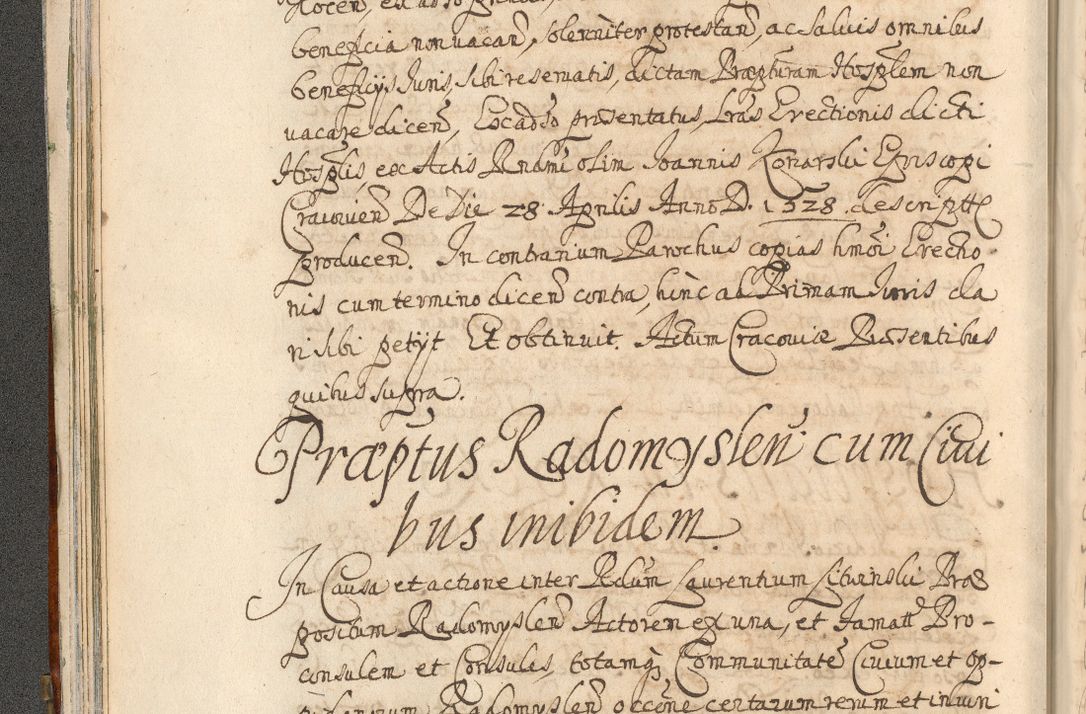 beneficia non vacañ, solenniter protestañ, ac salvis omnibus
beneficijs Juris, sibi reservatis, dictam Præpturam Hosplem non
vacare diceñ, præsentatus, Lras Erectionis dicti
Hosplis, ex Actis Rndmi olim Joannis Konarski Episcopi
Cracovieñ De Die 28. Aprilis Anno D. 1528. descriptt
produceñ. In contrarium Parochus copias hmõi Erectio
nis cum termino diceñ contra, hinc ad Primam Juris da
ri sibi petijt Et obtinuit. Actum Cracoviæ Præsentibus
quibus supra.
Præptus Radomysleñ cum Civi
bus inibidem
In Causa et actione inter Rdum Laurentium Litwinski Præ
positum Radomysleñ Actorem ex una, et Famatt Pro-
consulem et Consules, totamq Communitatẽ Civium et op-
pidanorum Radomysleñ occõne certarum rerum et iniuri